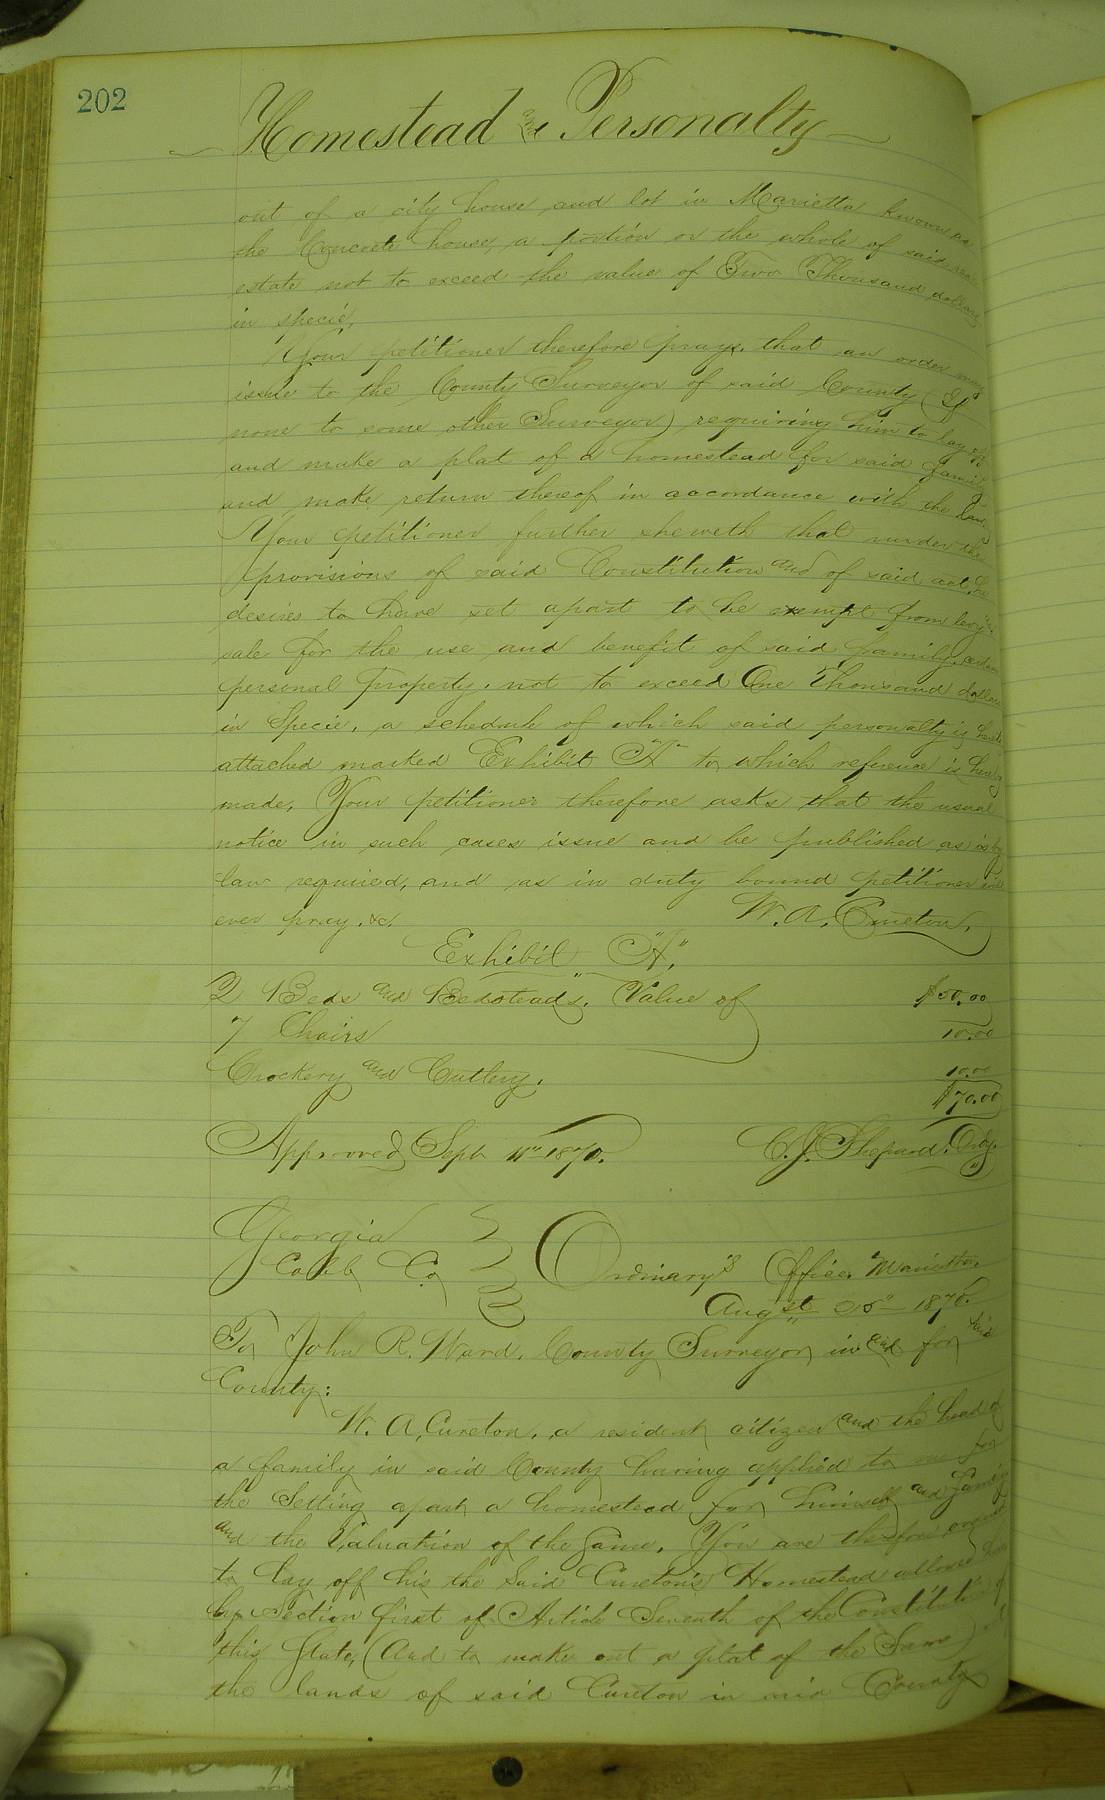 202
Homestead & Personalty
out of a city house and lot in Marietta known as
the Concrete house, a portion or the whole of said real
estate not to exceed the value of Two Thousand dollars
in specie.
Your petitioner therefore prays. that an order may
issue to the County Surveyor of said County (If
none to some other Surveyor) requiring him to lay off
and make a plat of a homestead for said family
and make return thereof in accordance with the law.
Your petitioner further sheweth that under the
provisions of said Constitution and of said act he
desires to have set apart to be exempt from levy
sale for the use and benefit of said family, certain
personal property. not to exceed One Thousand dollars
in Specie. a schedule of which said personalty is hereto
attached marked Exhibit "A" to which reference is hereby
made. Your petitioner therefore asks that the usual
notice in such cases issue and be published as is by
law required, and as in duty bound petitioner will
ever pray. &c. W. A. Cureton.
Exhibit "A".
2 Beds and Bedsteads. Value of $50.00
7 Chairs 10.00
Crockery and Cutlery. 10.00
$70.00
Approved Sept 11th 1870. C. J. Shepard. Ordy.
Georgia
Cobb Co Ordinary's Office. Marietta.
Augst 1870.
To John R. Ward. County Surveyor in and for said
County:
W. A. Cureton, a resident citizen and the head of
a family in said County having applied to me for
the Setting apart a homestead for himself and family
and the Valuation of the Same. You are therefore
to lay off his the Said Cureton's Homestead allowed him
by Section first of Article Seventh of the Constitution of
this State, (And to make out a plat of the Same)
the lands of said Cureton in said County